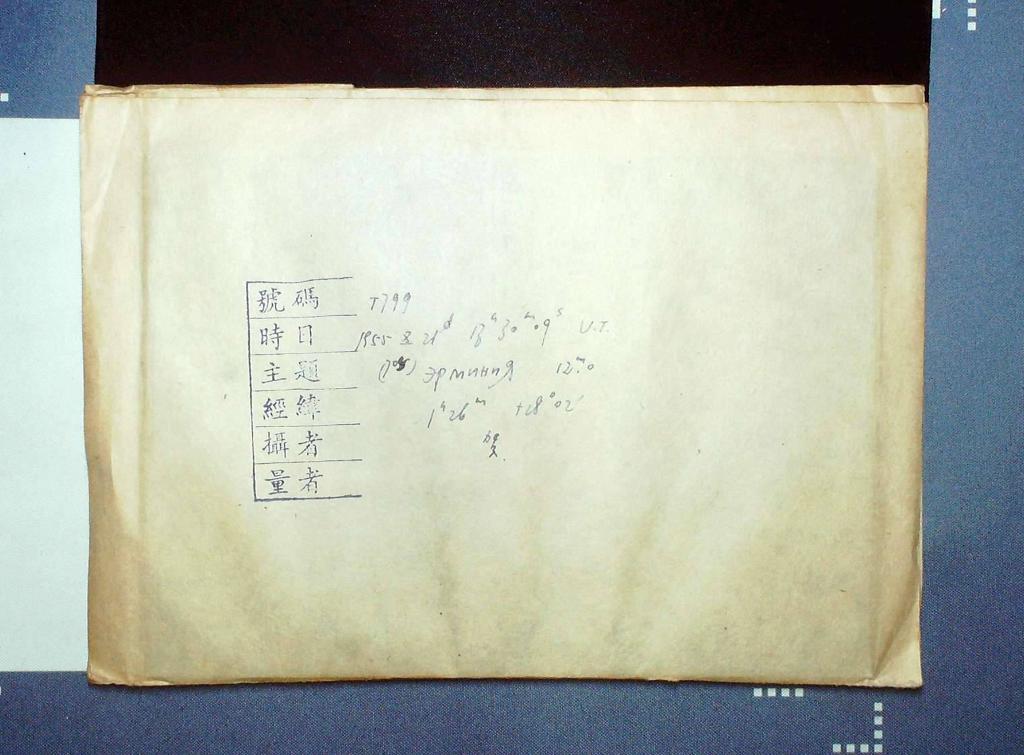 號碼 T799
時日 1955 21ᵈ 18ʰ30ᵐ09ˢ U.T.
主題 (705) Эрминия 12ᵐ.0
經緯 1ʰ26ᵐ +28°02'
攝者
量者